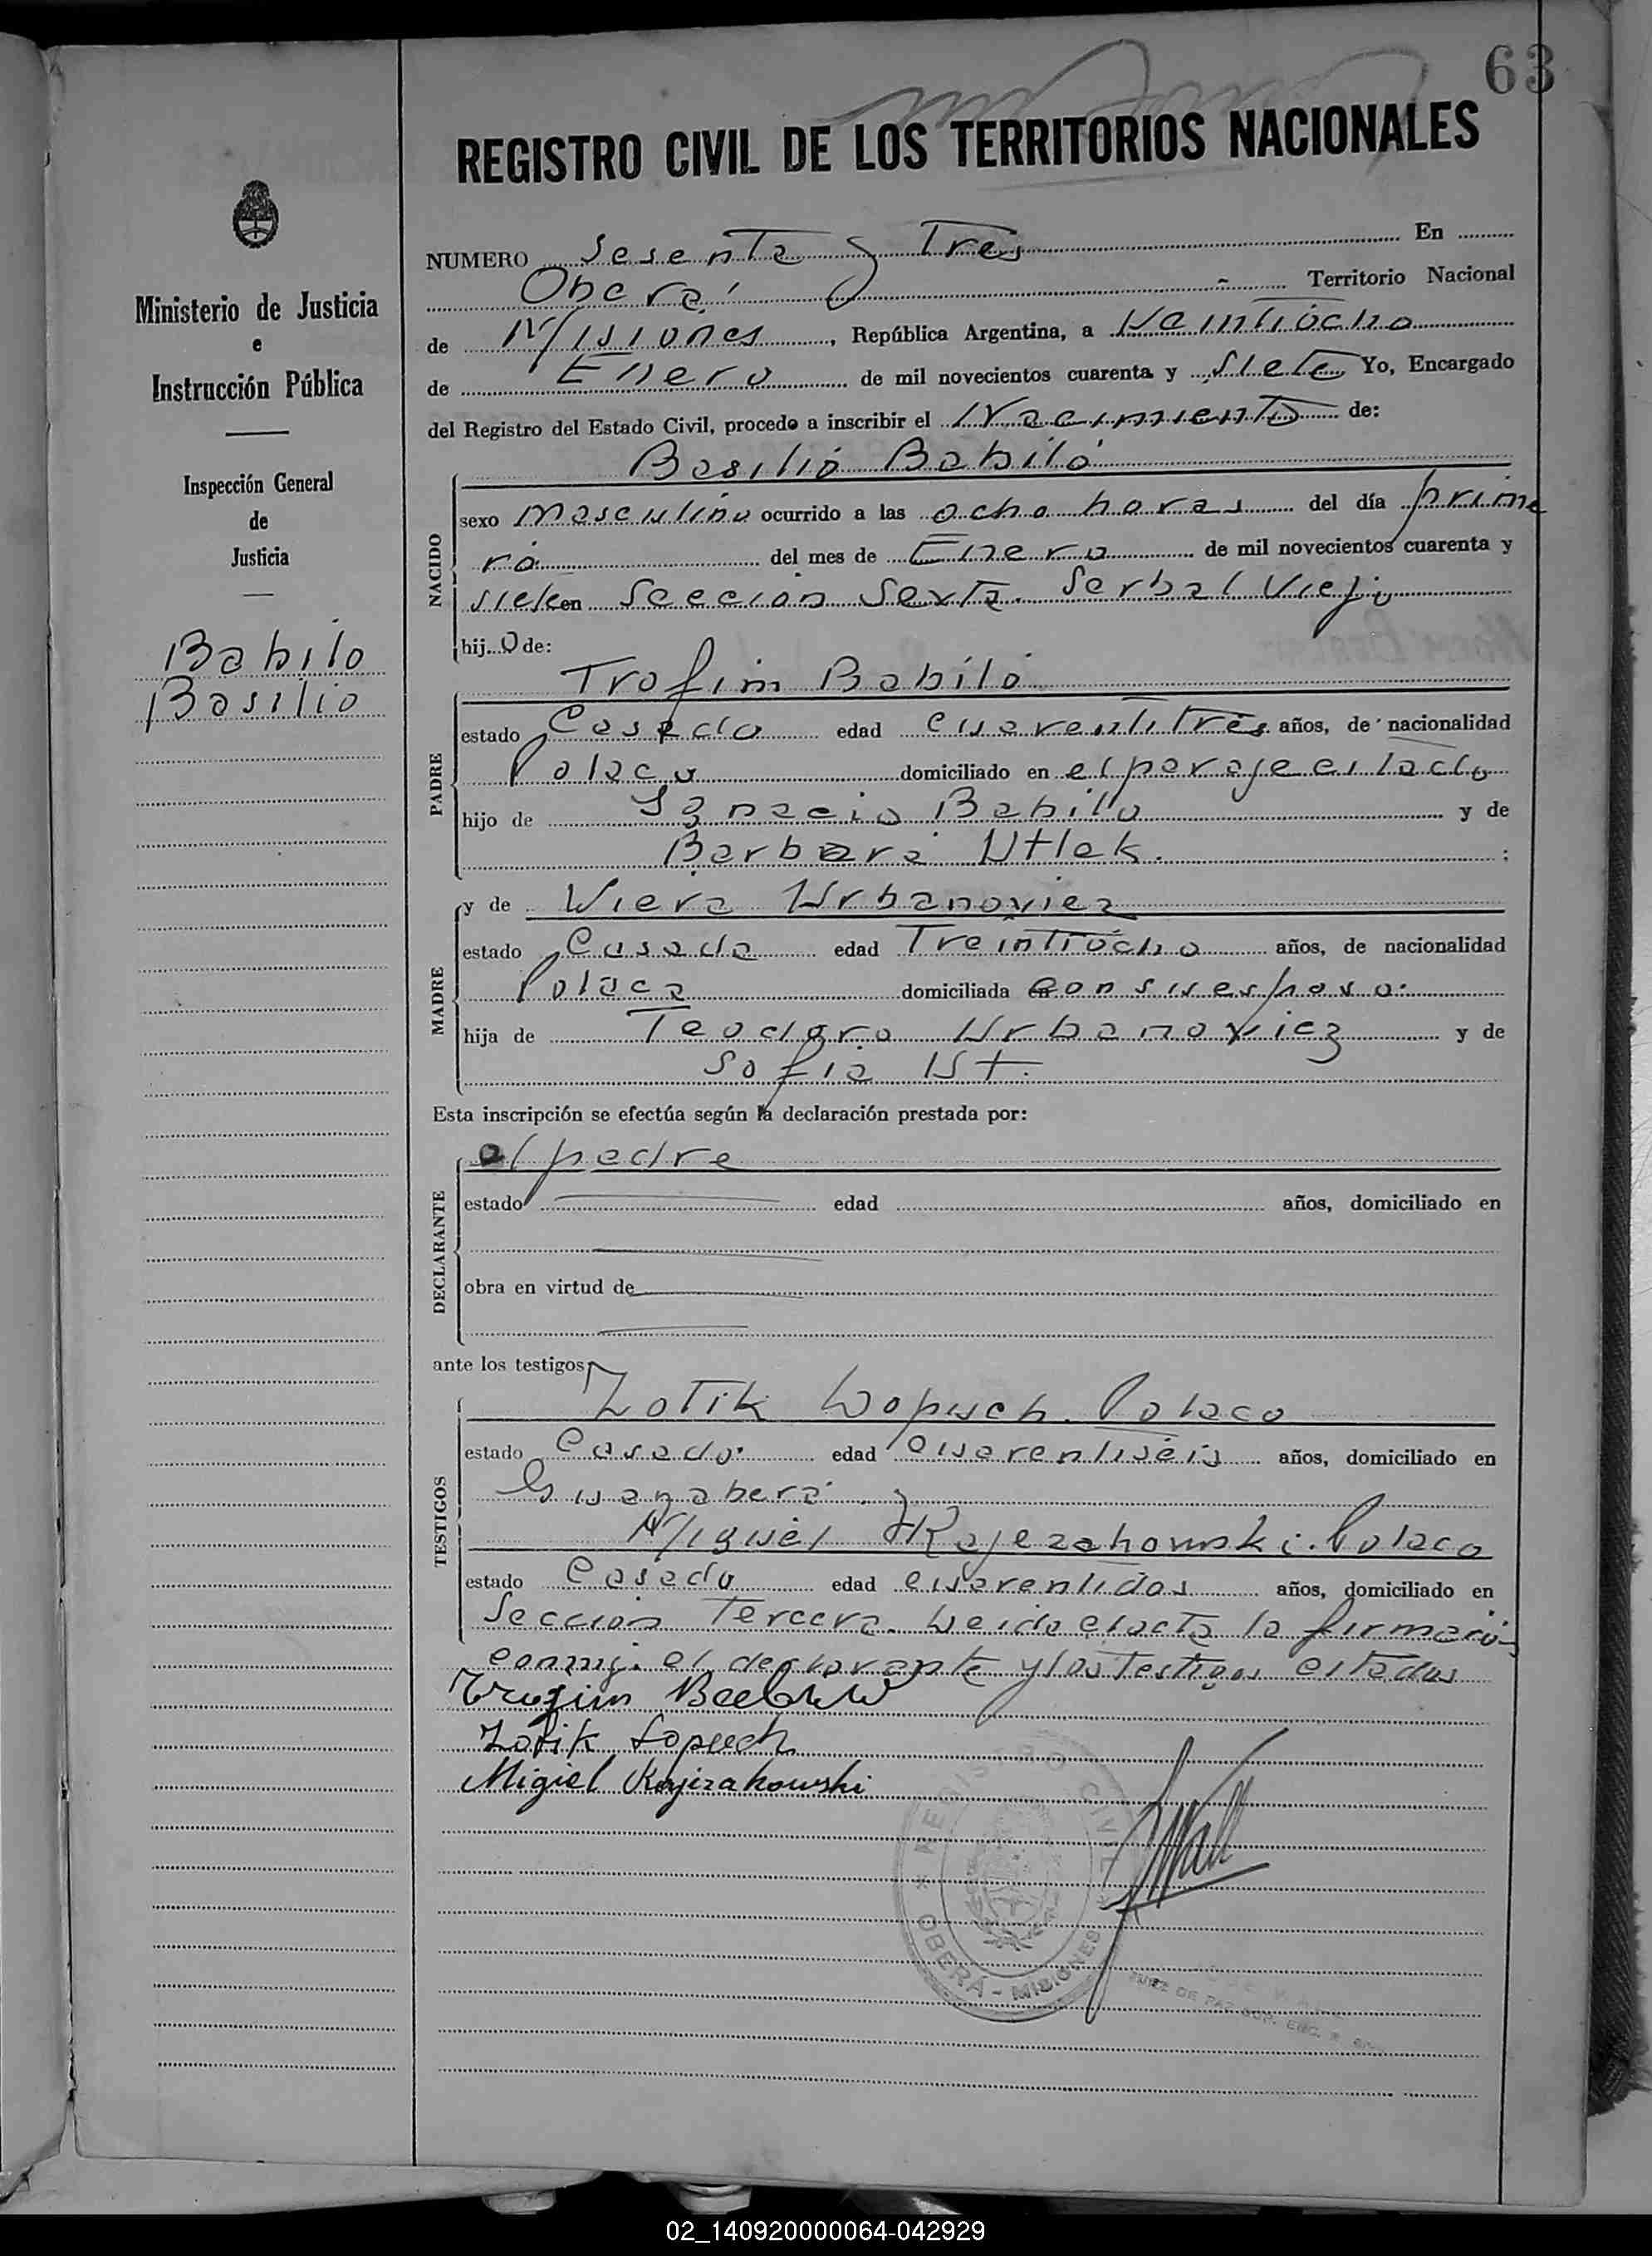 63
REGISTRO CIVIL DE LOS TERRITORIOS NACIONALES
Ministerio de Justicia
e
Instrucción Pública
Inspección General
de
Justicia
Babilo
Basilio
NUMERO Sesenta y Tres En
Oberá Territorio Nacional
de Misiones, República Argentina, a Veintiocho
de Enero de mil novecientos cuarenta y siete Yo, Encargado
del Registro del Estado Civil, procedo a inscribir el Nacimiento de:
Basilio Babilo
NACIDO
sexo Masculino ocurrido a las ocho horas del día prime
ro del mes de Enero de mil novecientos cuarenta y
siete en Seccion Sexta. Yerbal Viejo
hij o de:
Trofim Babilo
PADRE
estado Casado edad cuarentitres años, de nacionalidad
Polaco domiciliado en el paraje citado
hijo de Ignacio Babilo y de
Barbara Utlek. ;
MADRE
y de Wiera Urbanoviez
estado Casada edad Treintiocho años, de nacionalidad
Polaca domiciliada en con su esposo.
hija de Teodoro Urbanoviez y de
Sofia Ust.
Esta inscripción se efectúa según la declaración prestada por:
DECLARANTE
el padre
estado edad años, domiciliado en
obra en virtud de
ante los testigos
TESTIGOS
Zotik Lopuch. Polaco
estado Casado. edad cuarentiseis años, domiciliado en
Guayabera.
Miguel Kajezakowski. Polaco
estado Casado edad cuarentidos años, domiciliado en
Seccion Tercera. Leida el acta la firmaron
conmigo el declarante y los testigos citados
Trofim
Zotik Lopuch
Migiel Kajizakowski
REGISTRO CIVIL
OBERÁ - MISIONES
JUEZ DE PAZ SUP. ENC. R.
02_140920000064-042929